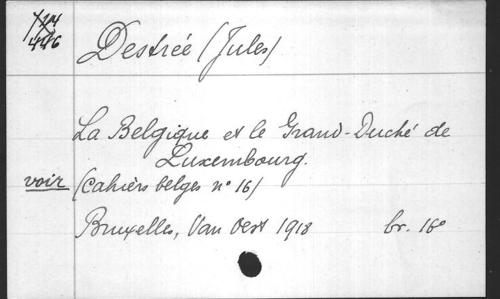 Destrée (Jules)
La Belgique et le Grand-Duché de
Luxembourg.
voir (Cahiers belges n° 16)
Bruxelles, Van Oest 1918 br. 16°